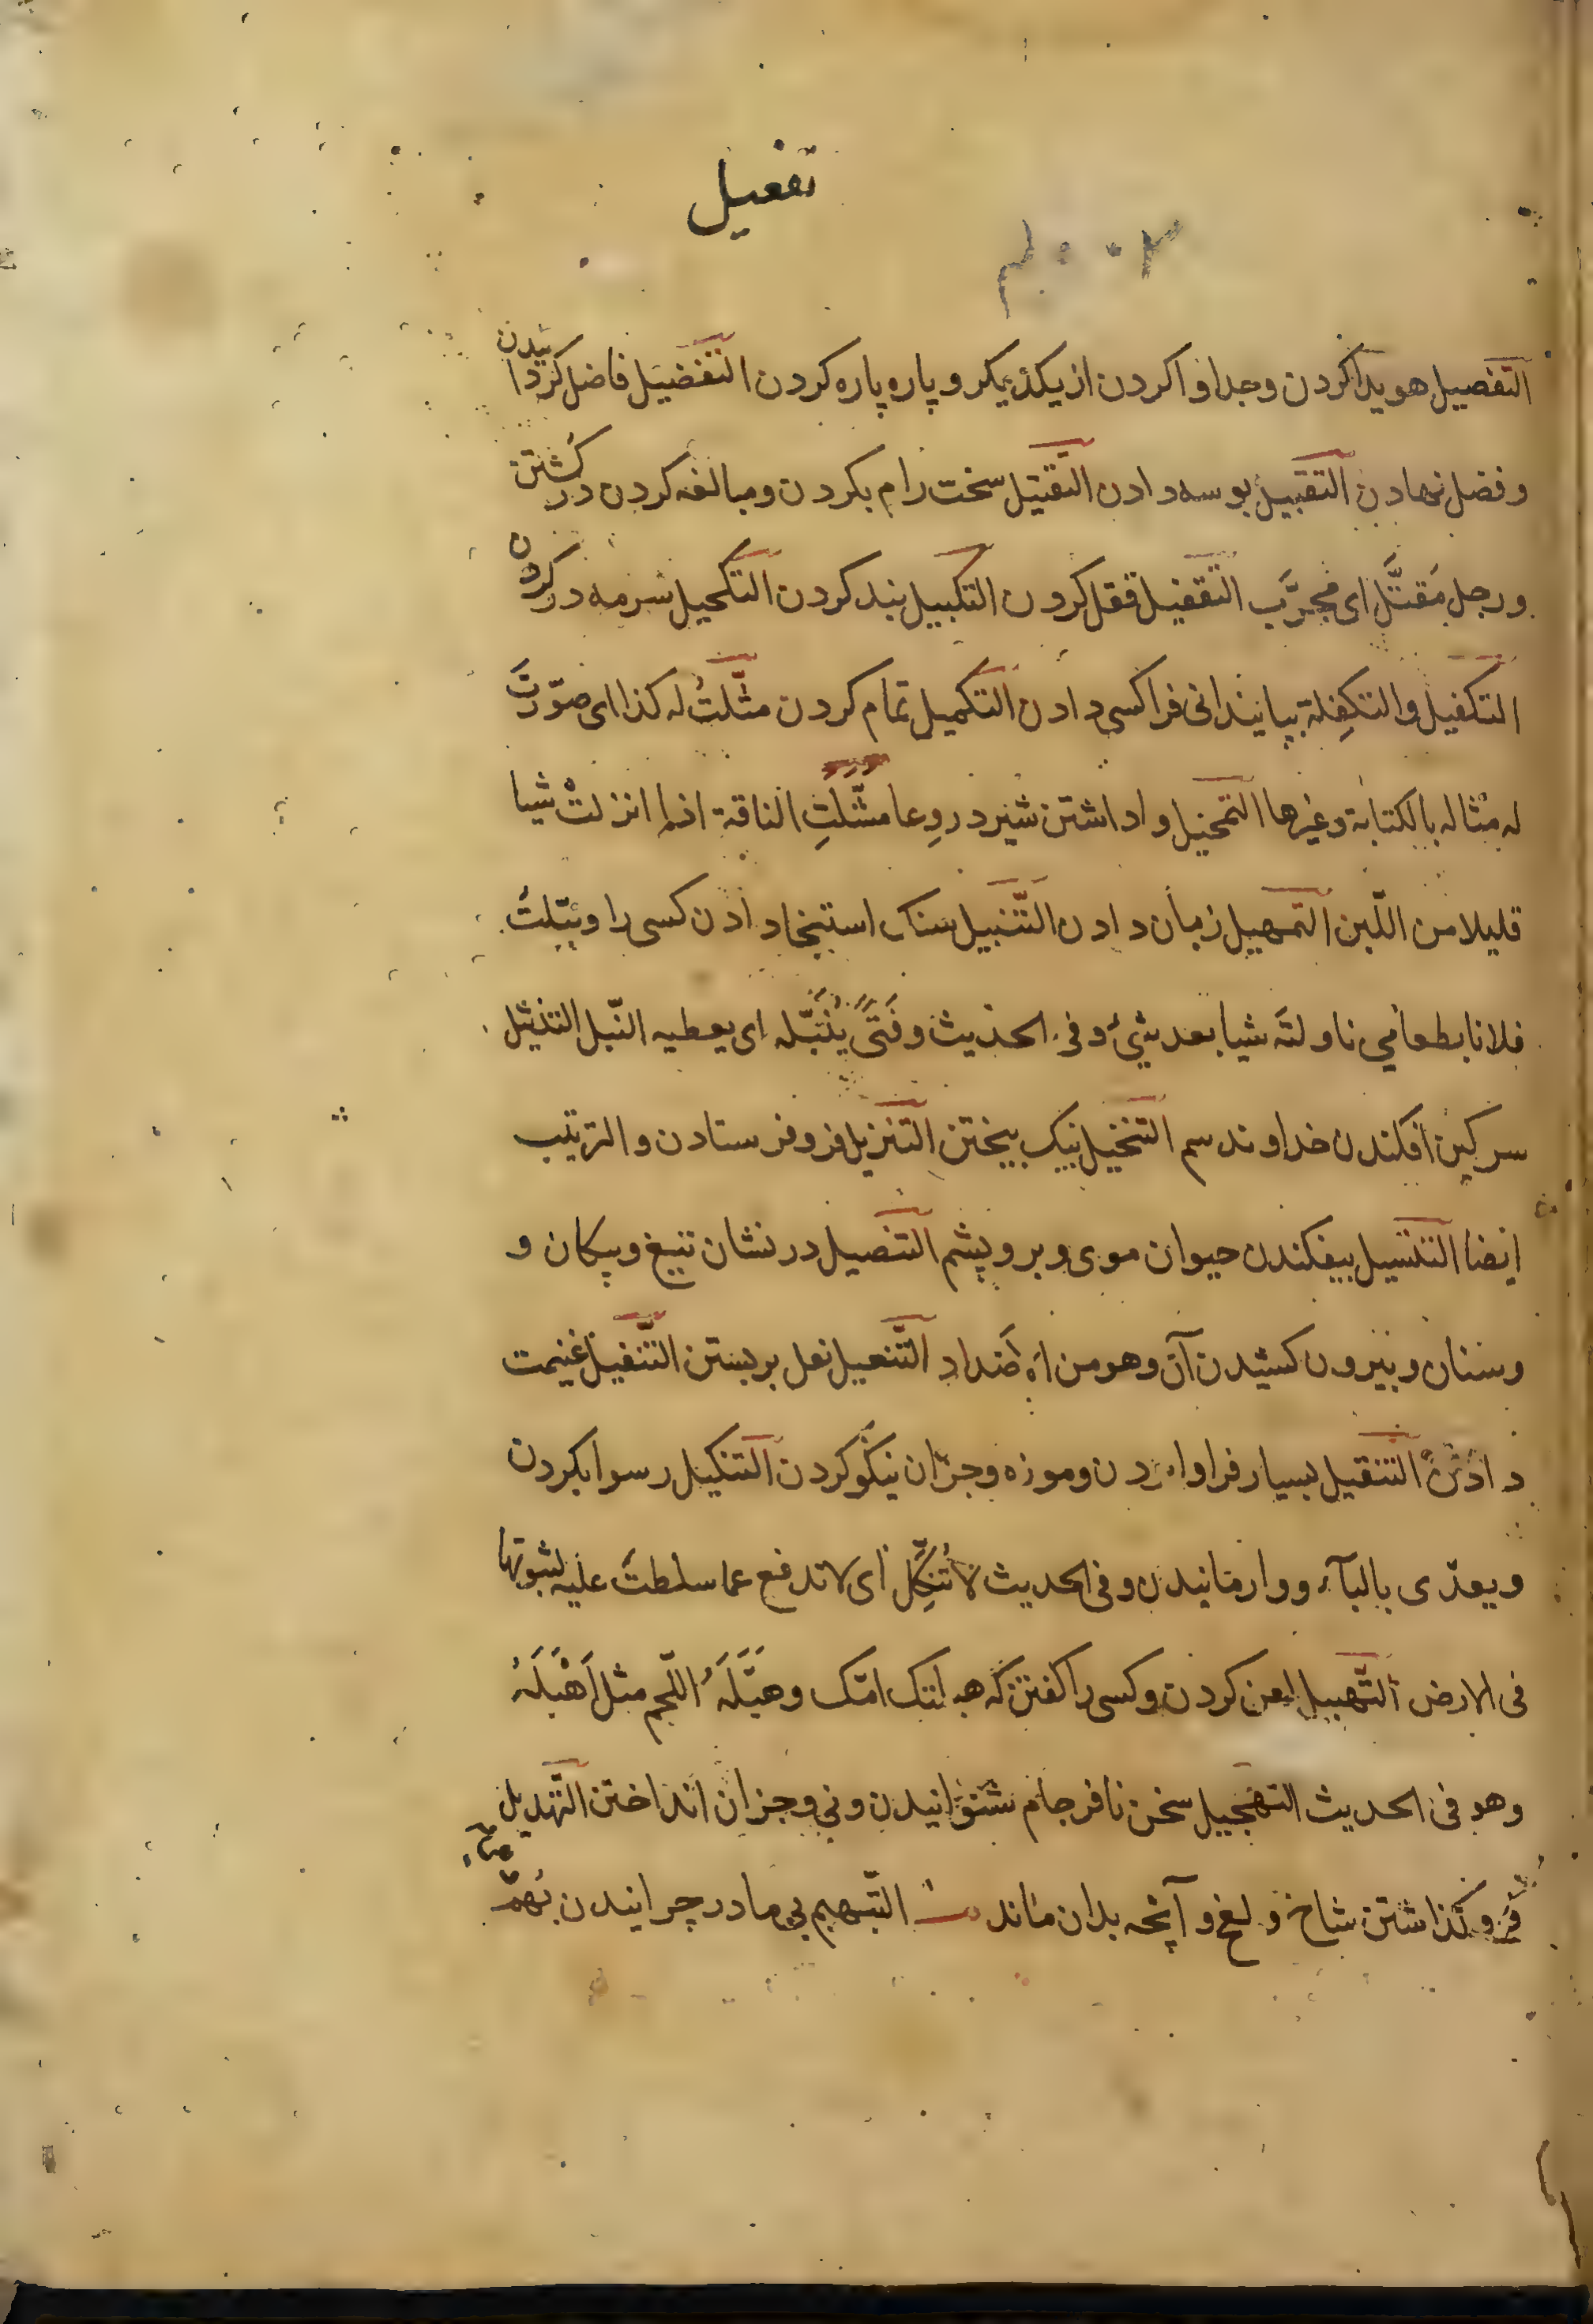 تفعیل
التفصیل هویدا کردن وجدا واکردن از یکدیکر و پاره پاره کردن التفضیل فاضل کردانیدن
و فضل نهادن التقبیل بوسه دادن التقتیل سخت رام بکردن و مبالغه کردن در کشتن
ورجل مُقتَّل ای مجرَّب التقفیل قفل کردن التکبیل بند کردن التکحیل سرمه در کردن
التکفیل والتکفِلة بپایندانی فراکسی دادن التکمیل تمام کردن مثّلتُ له کذا ای صوّرتُ
له مثاله بالکتابة وغیرها التمحیل واداشتن شیر در وعا مثّلتِ الناقة اذا انزلتْ شیا
قلیلا من اللّبن التمهیل زمان دادن التّنبیل سنک استنجا دادن کسی را ونبّلتُ
فلانا بطعام ناولته شیا بعد شئ وفی الحدیث وفتًی یُنبّله ای یعطیه النّبل التنثیل
سرکین افکندن خداوند سم التنخیل نیک بیختن التنزیل فروفرستادن والترتیب
ایضا التنسیل بیفکندن حیوان موی و بر و پشم التنصیل در نشان تیغ و پیکان و
وسنان و بیرون کشیدن آن وهو من الاضداد التّنعیل نعل بربستن التّنفیل غنیمت
دادن التنقیل بسیار فراواردن وموزه وجزان نیکو کردن التنکیل رسوا بکردن
ویعدّی بالبآء و وارمانیدن وفی الحدیث لا تُنَکِّل ای لا تدفع عما سلطت علیه لثبوتها
فی الارض التّهبیل لعن کردن وکسی را کفتن که هبلتک امّک وهبَّلَهُ اللّحم مثل اَهْبَلَهُ
وهو فی الحدیث التهجیل سخن نافرجام شنوانیدن ونی وجزان انداختن التّهدیل
فروکذاشتن شاخ و لفج و آنچه بدان ماند م التّبهیم بی مادر چرانیدن بَهْم